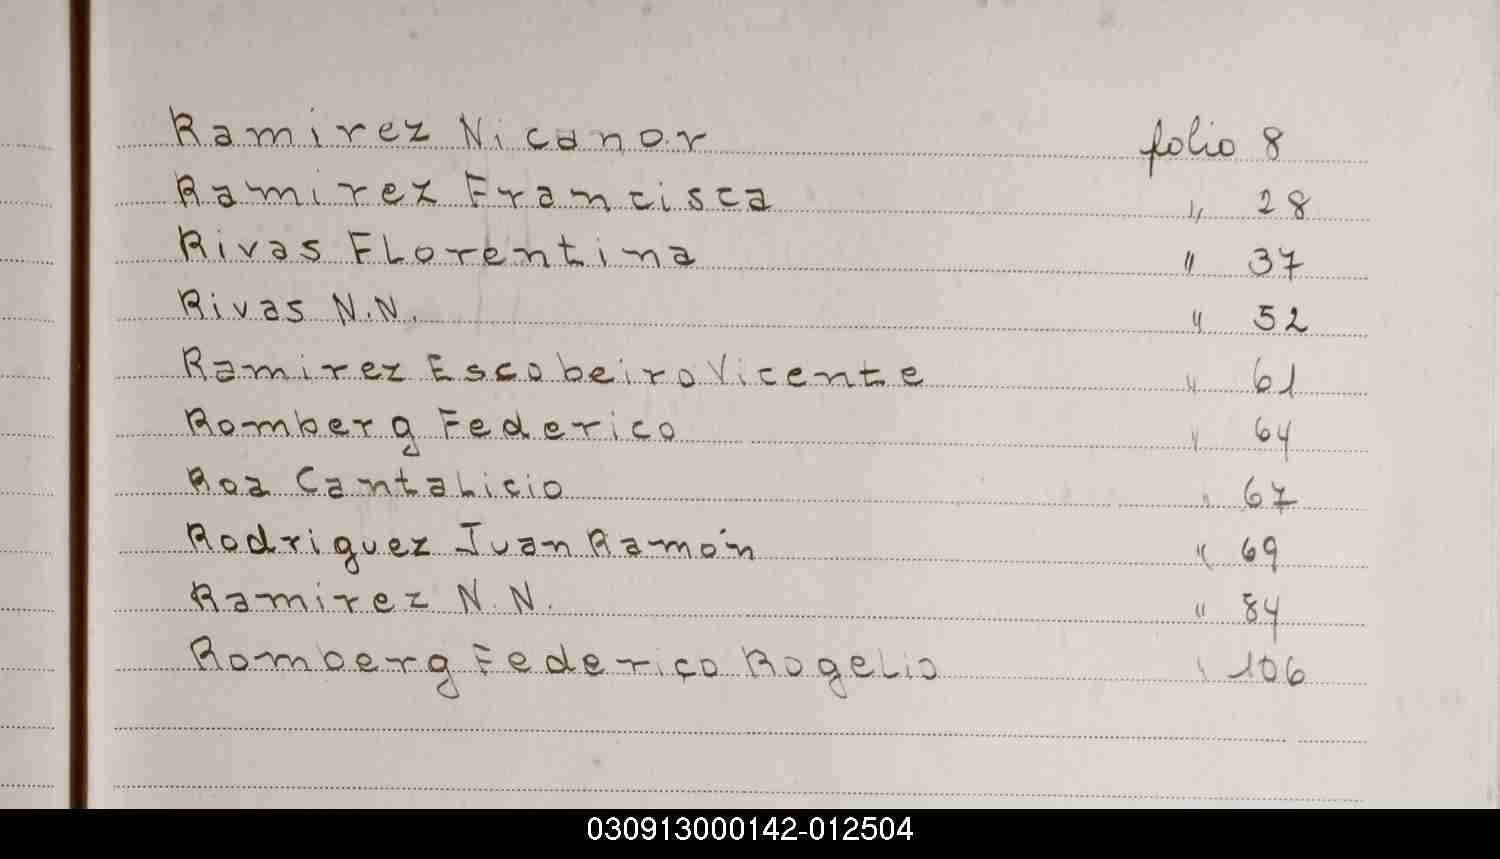 Ramirez Nicanor folio 8
Ramirez Francisca " 28
Rivas Florentina " 37
Rivas N.N. " 52
Ramirez Escobeiro Vicente " 61
Romberg Federico " 64
Roa Cantalicio " 67
Rodriguez Juan Ramón " 69
Ramirez N.N. " 84
Romberg Federico Rogelio " 106
030913000142-012504